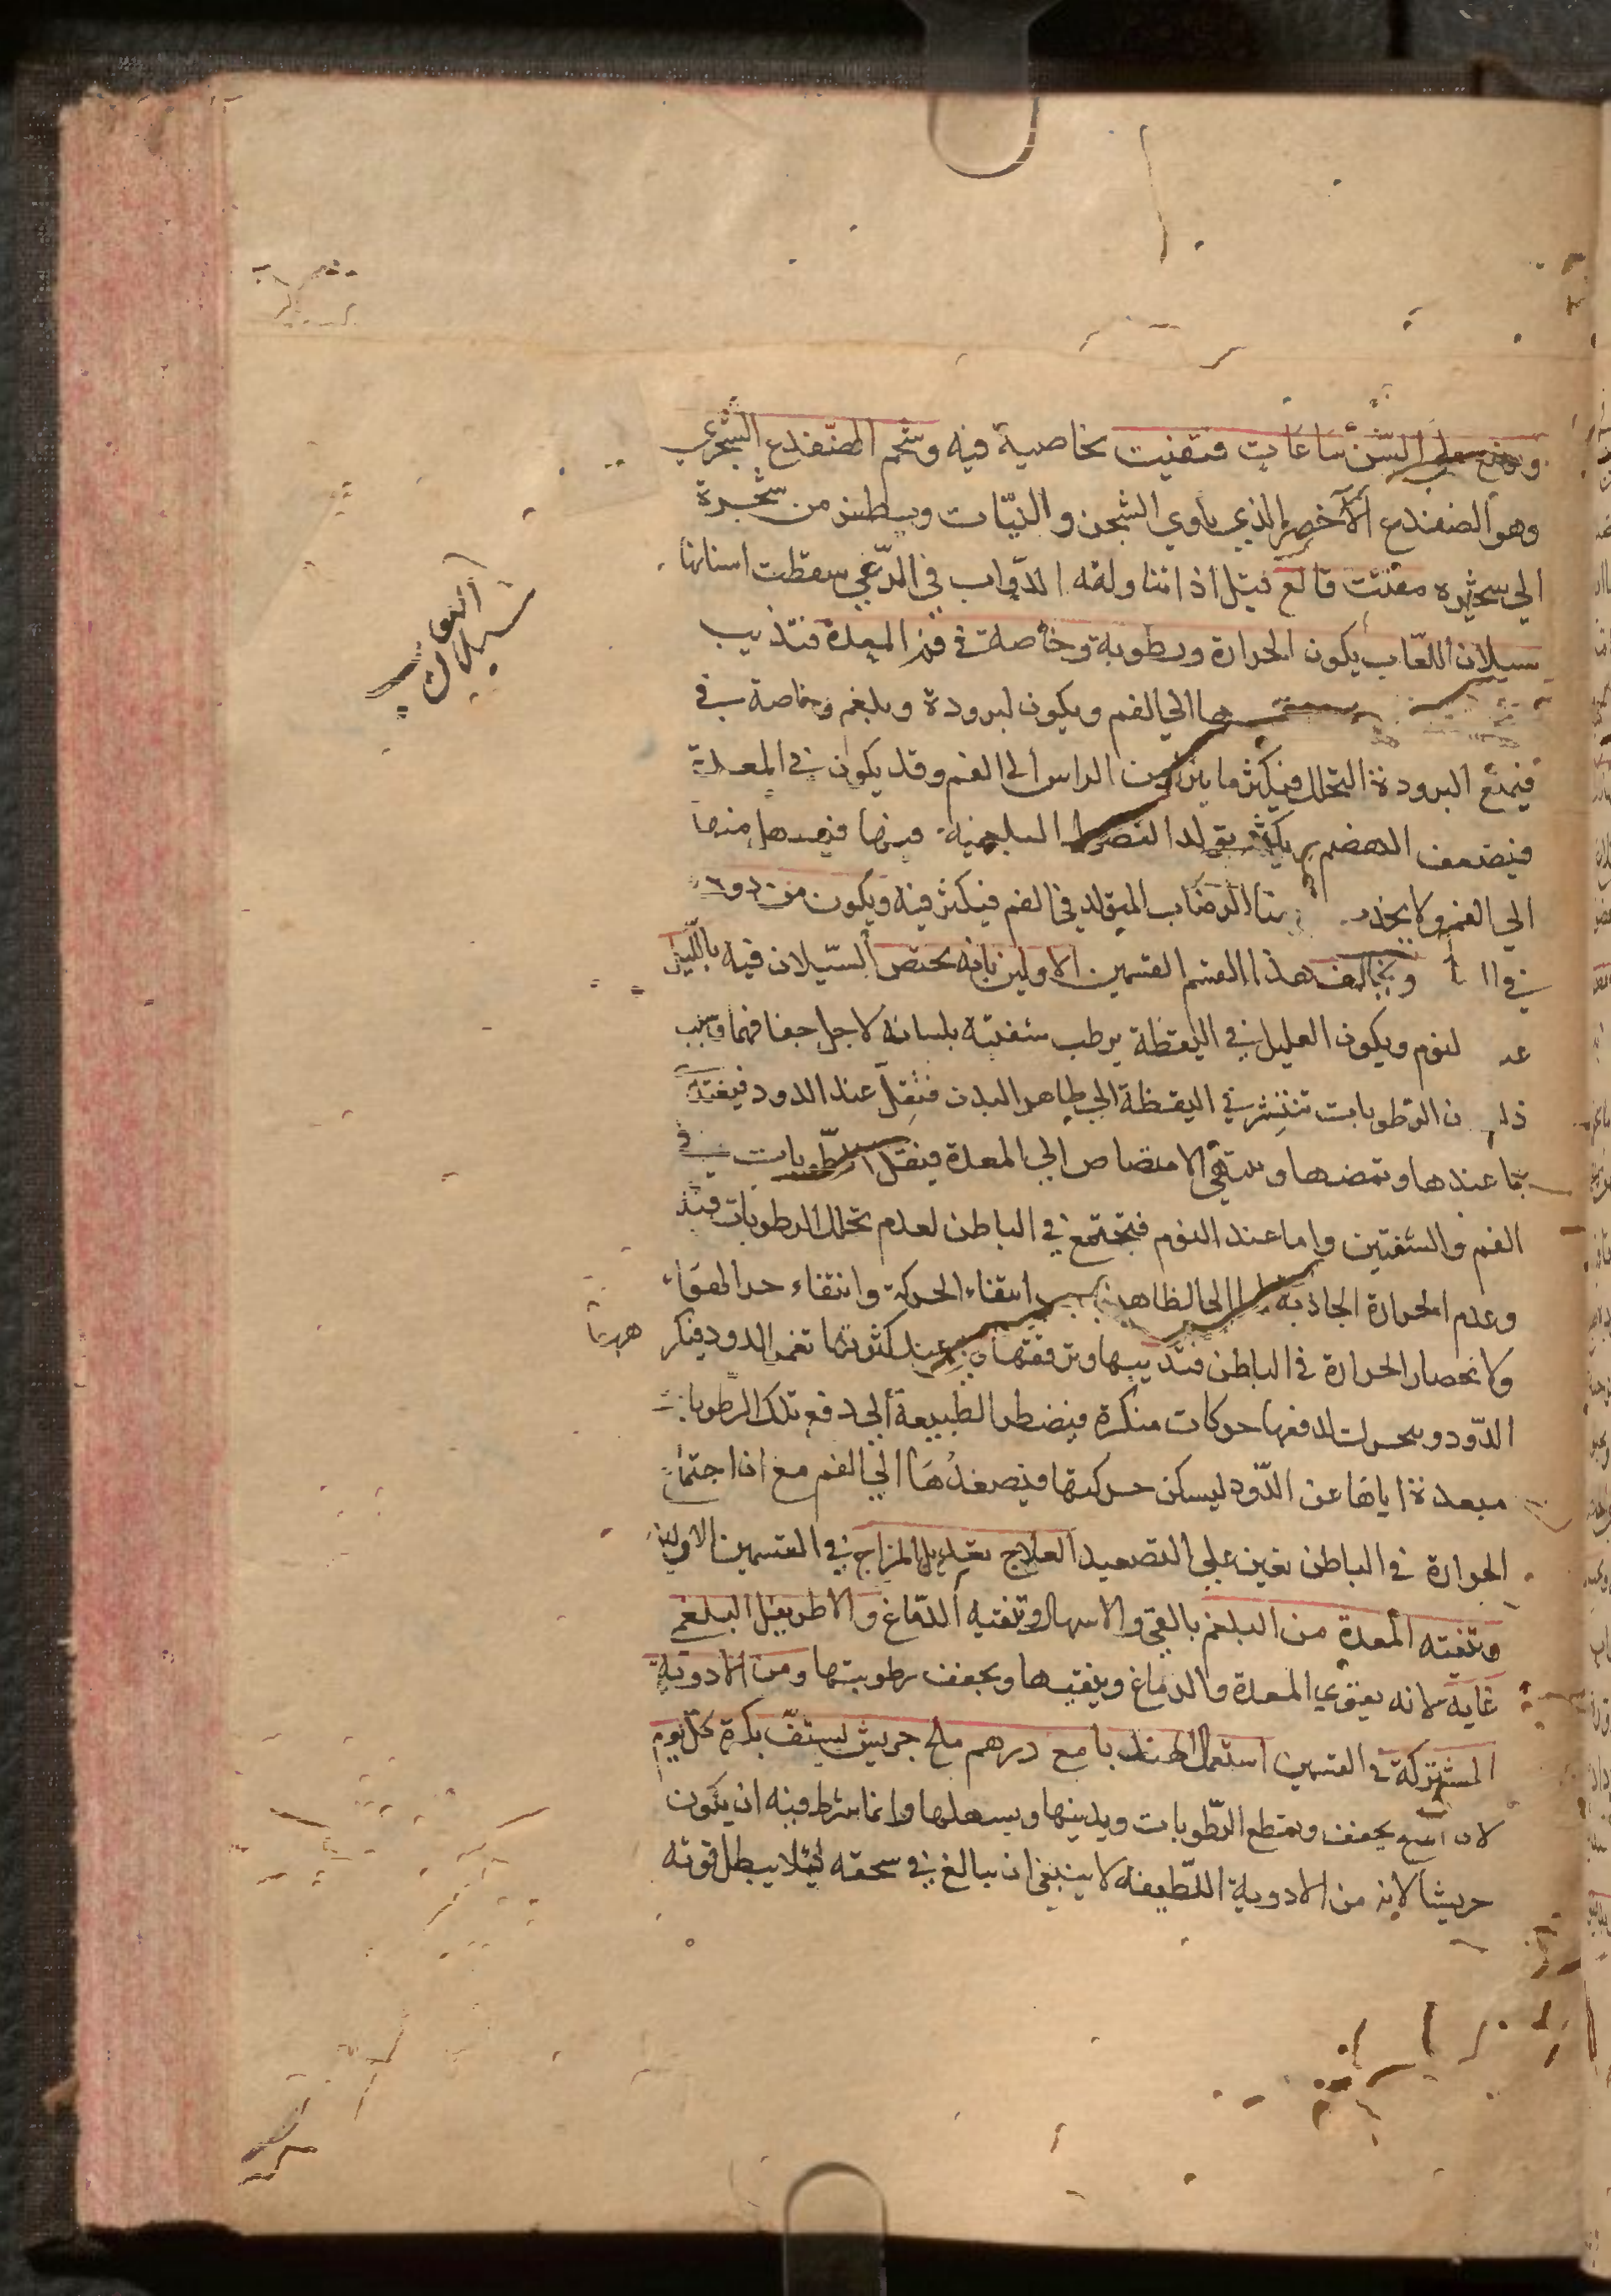 ويوضع على السن ساعات فتفنت بخاصية فيه وشحم الضفدع الشجري
وهو الضفدع الاخضر الذي ياوي الشجر والنبات ويطفر من شجرة
الي شجره مفتت قالع قيل اذا تناولته الدواب في الرعي سقطت اسنانها
سيلان اللعاب يكون الحرارة ورطوبة وخاصة في فم المعدة فتذيب
ها الي الفم ويكون لبرودة وبلغم وخاصة في
فيمنع البرودة التحلل فيكثر ما ينزل من الراس الى الفم وقد يكون في المعدة
فيضعف الهضم ويكثر تولد البلغمية فيها فيصعدها منها
الي الفم ولا الرضاب المتولد في الفم فيكثر فيه ويكون من دود
في ويخالف هذا القسم القسمين الاولين بانه يختص السيلان فيه بالليل
لنوم ويكون العليل في اليقظة يرطب شفتيه بلسانه لاجل جفافهما وسبب
ن الرطوبات تنتشر في اليقظة الي ظاهر البدن فتقل عند الدود فيغتذ
بما عندها وتمصها الامتصاص الي المعدة فيقل الرطوبات في
الفم والشفتين واما عند النوم فتجتمع في الباطن لعدم تحلل الرطوبات فيه
وعدم الحرارة الجاذبة الى الظاهر انتفاء الحركة وانتفاء حر الهواء
ولانحصار الحرارة في الباطن فتذيبها وترققها عند كثرتها تغمر الدود فيكر
هربا
الدود ويحرك لدفعها حركات منكرة فيضطر الطبيعة الي دفع تلك الرطوبات
مبعدة اياها عن الدود ليسكن حركتها فيصعدها الي الفم مع ان اجتماع
الحرارة في الباطن تعين علي التصعيد العلاج تعديل المزاج في القسمين الاولين
وتنقية المعدة من البلغم بالقي والاسهال وتنقيه الدماغ والاطريفل البلغم
غاية لانه يقوي المعدة والدماغ وينقيها ويجفف رطوبتها ومن الادوية
المشتركة في القسمين استعمال الهندبا مع درهم ملح جريش يستف بكرة كل يوم
لان الملح يجفف ويقطع الرطوبات ويذيبها ويسهلها وانما شرط فيه ان يكون
جريشا لانه من الادوية اللطيفه لا ينبغي ان يبالغ في سحقه لئلا يبطل قوته
سيلان